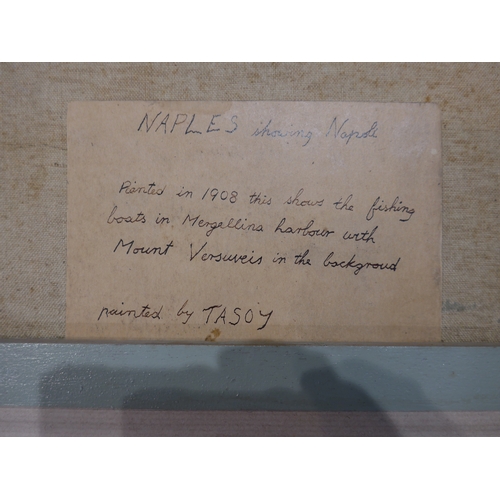 NAPLES showing Napoli
Painted in 1908 this shows the fishing
boats in Mergellina harbour with
Mount Versuveis in the backgroud
painted by TASOY